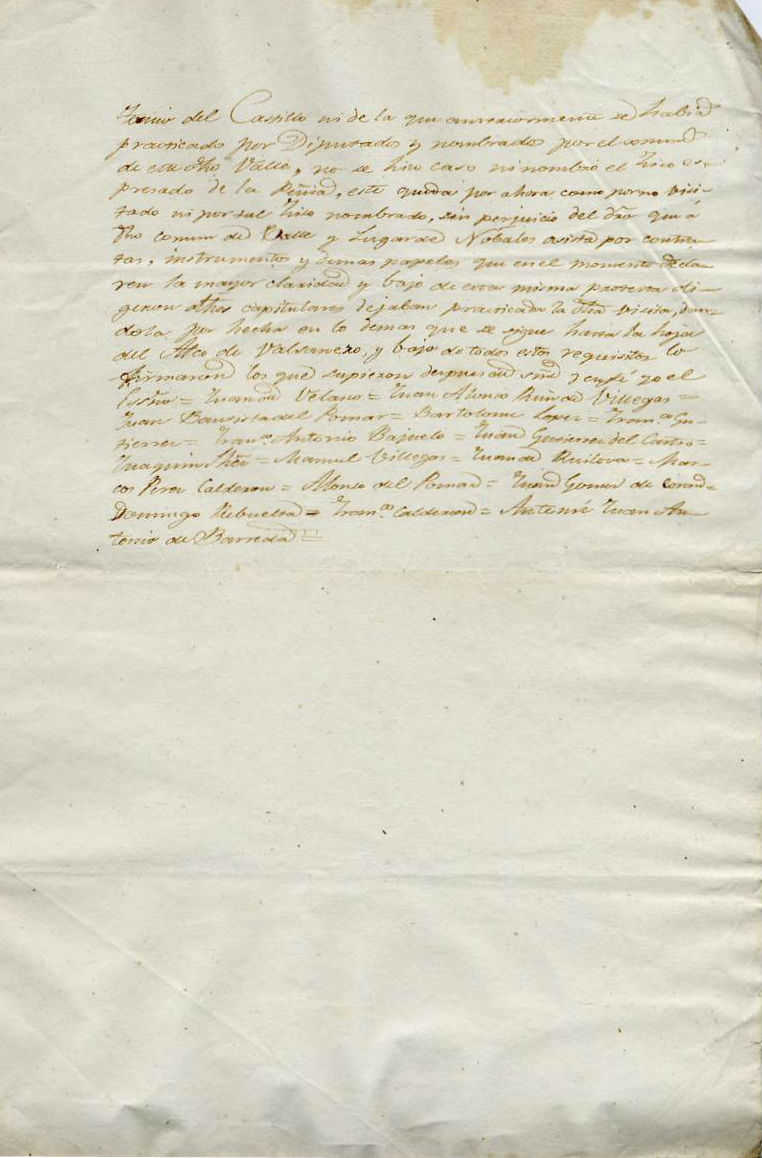 tonio del Castillo ni de la que anteriormente se habia
practicado por Diputados y nombrados por el comun
de este dho Valle, no se hizo caso ni nombró el hito es-
presado de la Peñia, este queda por ahora como por no visi-
tado ni por tal hito nombrado, sin perjuicio del dro que á
dho comun de Valle y Lugar de Nobales asista por contra-
tas, instrumentos y demas papeles que en el momento decla-
ren la mayor claridad y bajo de esta misma protesta di-
geron dhos capitulares dejaban practicada la dha visita, dan-
dola por hecha en lo demas que se sigue hasta la hoja
del Alto de Valsanezo, y bajo de todos estos requisitos lo
firmaron los que supieron despues de smd y en fé yo el
Essño = Juan de Velasco = Juan Alonso Ruin de Villegas =
Juan Bautista del Pomar = Bartolome Lopez = Franco Gu-
tierrez = Franco Antonio Bajuelo = Juan Gutierrez del Castro =
Joaquin = Manuel Villegas = Juan de Ruilova = Mar-
cos Perez Calderon = Alonso del Pomar = Juan Gomez de =
Domingo Rebuelta = Franco Calderon = Antemi Juan An-
tonio de Barreda =